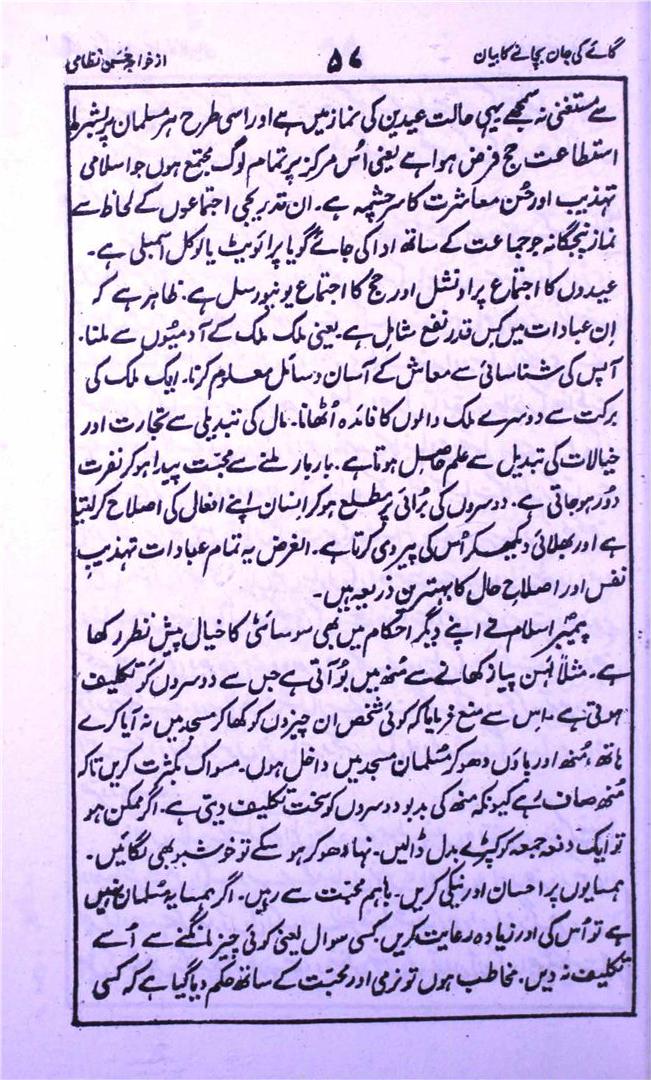 گائے کی جان بچانے کا بیان ۵۷ از خواجہ حسن نظامی
سے مستغنی نہ سمجھے یہی حالت عیدین کی نماز میں ہے اور اسی طرح ہر مسلمان پر بشرط
استطاعت حج فرض ہوا ہے یعنی اُس مرکز پر تمام لوگ مجتمع ہوں جو اسلامی
تہذیب اور حُسن معاشرت کا سرچشمہ ہے۔ ان تدریجی اجتماعوں کے لحاظ سے
نماز پنجگانہ جو جماعت کے ساتھ ادا کی جائے گویا پرائویٹ یا لوکل اسمبلی ہے۔
عیدوں کا اجتماع پراونشل اور حج کا اجتماع یونیورسل ہے۔ ظاہر ہے کہ
اِن عبادات میں کس قدر نفع شامل ہے۔ یعنی ملک ملک کے آدمیوں سے ملنا۔
آپس کی شناسائی سے معاش کے آسان وسائل معلوم کرنا۔ ایک ملک کی
برکت سے دوسرے ملک والوں کا فائدہ اُٹھانا۔ مال کی تبدیلی سے تجارت اور
خیالات کی تبدیل سے علم حاصل ہوتا ہے۔ بار بار ملنے سے محبت پیدا ہو کر نفرت
دُور ہو جاتی ہے۔ دوسروں کی بُرائی پر مطلع ہو کر انسان اپنے افعال کی اصلاح کر لیتا
ہے اور بھلائی دیکھکر اُس کی پیروی کرتا ہے۔ الغرض یہ تمام عبادات تہذیبِ
نفس اور اصلاحِ حال کا بہترین ذریعہ ہیں۔
پیمبرِ اسلام نے اپنے دیگر احکام میں بھی سوسائٹی کا خیال پیش نظر رکھا
ہے۔ مثلاً لہسن پیاز کھانے سے مُنھ میں بُو آتی ہے جس سے دوسروں کو تکلیف
ہوتی ہے۔ اِس سے منع فرمایا کہ کوئی شخص ان چیزوں کو کھا کر مسجد میں نہ آیا کرے
ہاتھ، مُنھ اور پاؤں دھو کر مُسلمان مسجد میں داخل ہوں۔ مسواک بکثرت کریں تاکہ
مُنھ صاف رہے کیونکہ منھ کی بدبو دوسروں کو سخت تکلیف دیتی ہے۔ اگر ممکن ہو
تو ایک دفعہ جمعہ کو کپڑے بدل ڈالیں۔ نہا دھو کر ہو سکے تو خوشبو بھی لگائیں۔
ہمسایوں پر احسان اور نیکی کریں۔ باہم محبت سے رہیں۔ اگر ہمسایہ مُسلمان نہیں
ہے تو اُس کی اور زیادہ رعایت کریں کسی سوال یعنی کوئی چیز مانگنے سے اُسے
تکلیف نہ دیں۔ مخاطب ہوں تو نرمی اور محبّت کے ساتھ حکم دیا گیا ہے کہ کسی